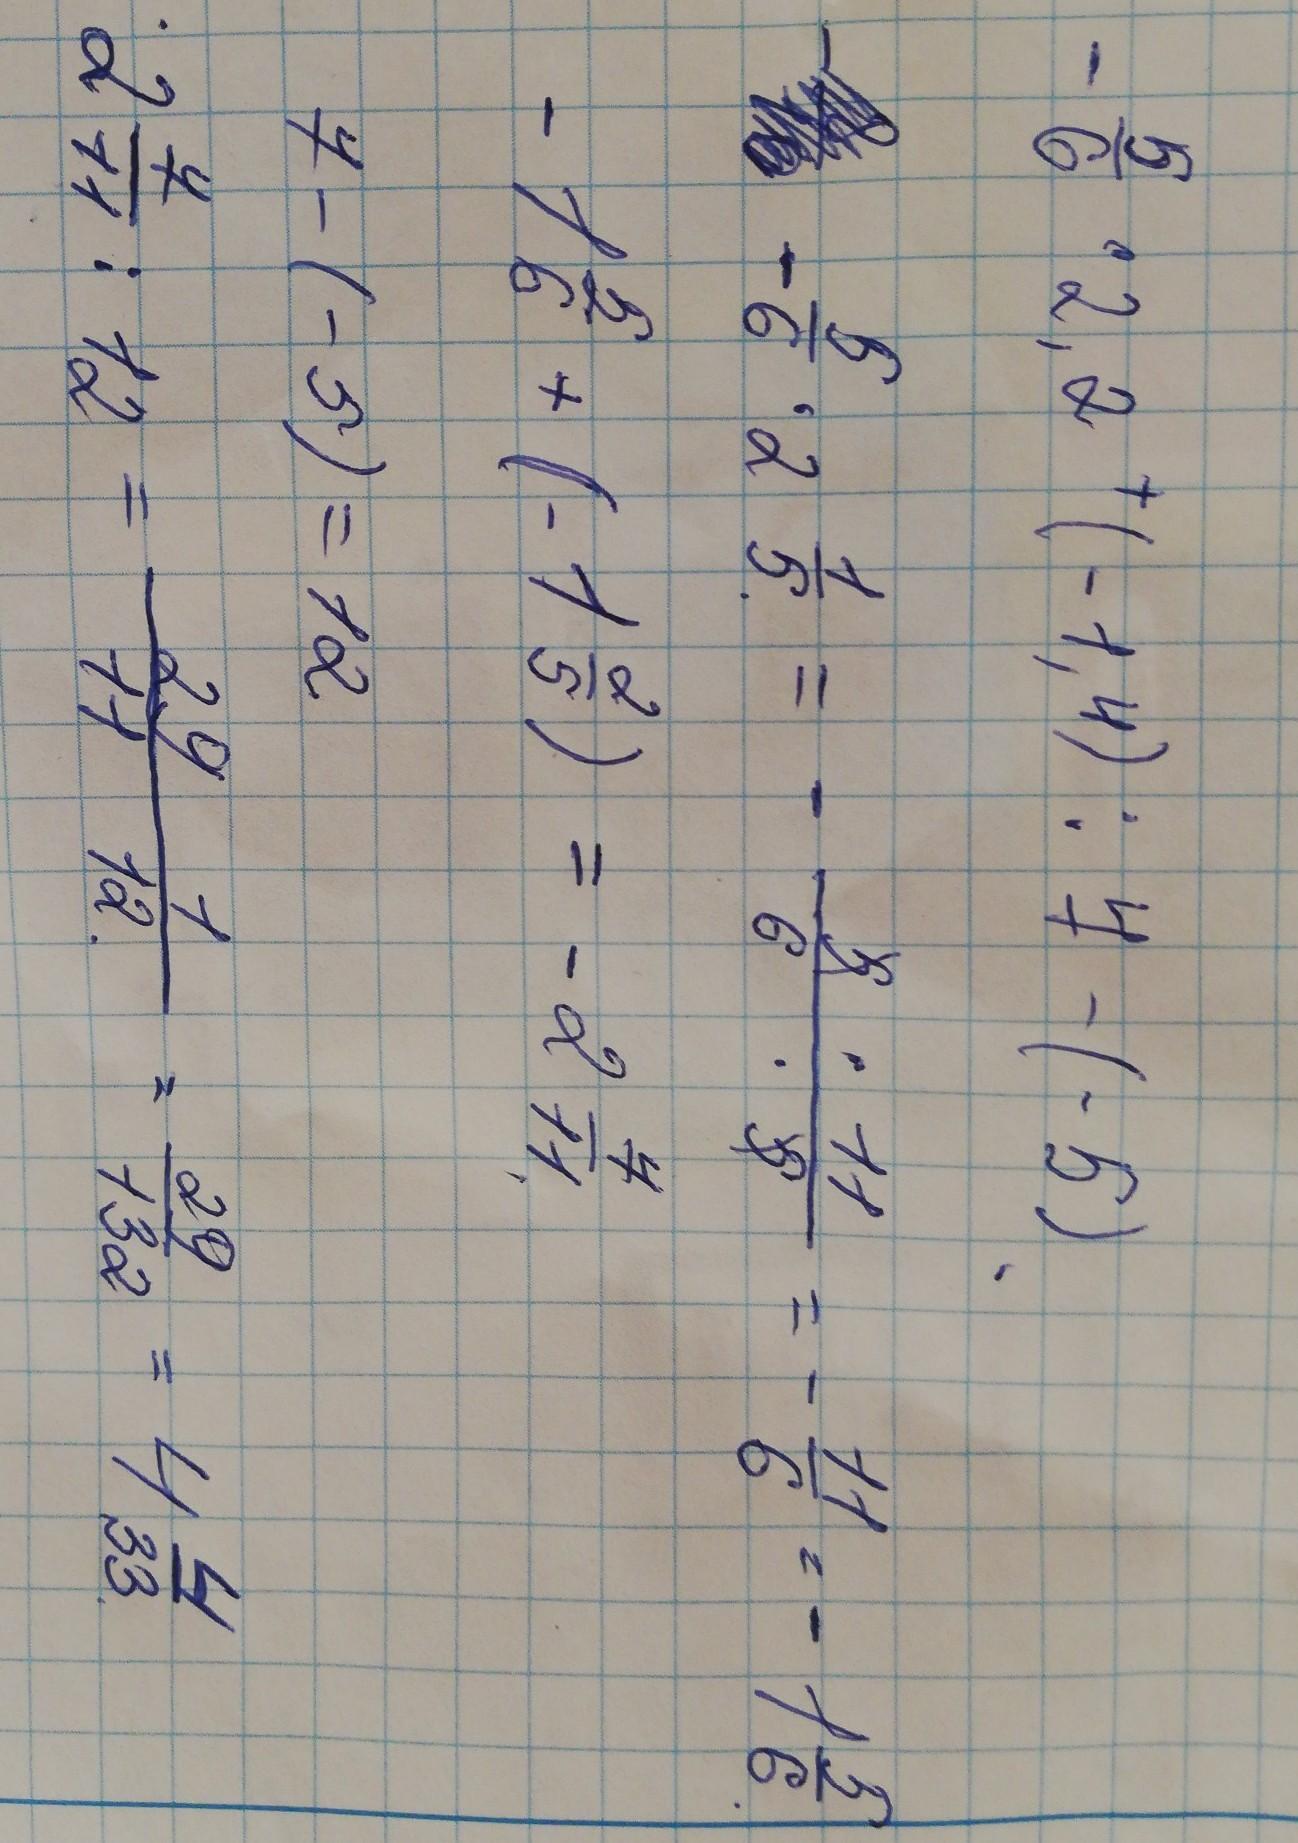 - 5/6 · 2,2 + (-1,4) : 7 - (-5)
- 5/6 · 2 1/5 = - 5 · 11 / 6 · 5 = - 11/6 = - 1 5/6
- 1 5/6 + (-1 2/5) = - 2 7/11
7 - (-5) = 12
2 7/11 : 12 = 29 1 / 11 12 = 29/132 = 4 4/33